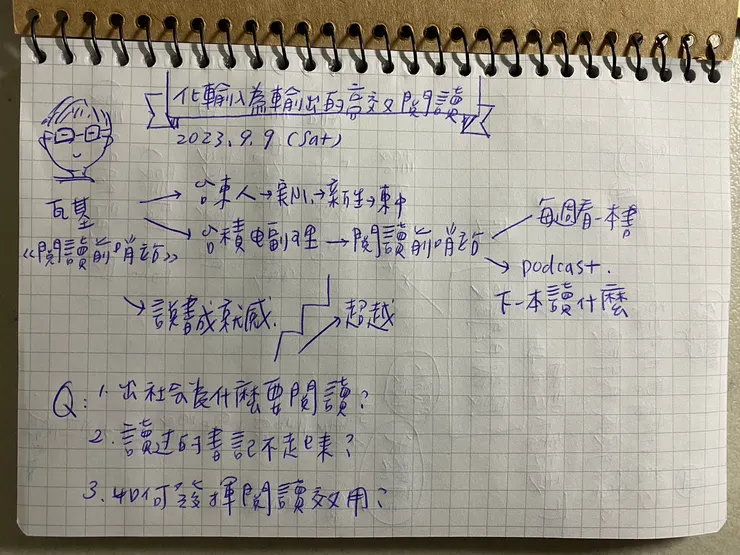 化輸入為輸出的高效閱讀
2023.9.9 (Sat)
瓦基
《閱讀前哨站》
台東人→新小→新生→東中
台積電副理→閱讀前哨站
每週看一本書
podcast.
下一本讀什麼
說書成就感
超越
Q: 1. 出社会後什麼要閱讀?
2. 讀过的書記不起來?
3. 如何發揮閱讀效用?